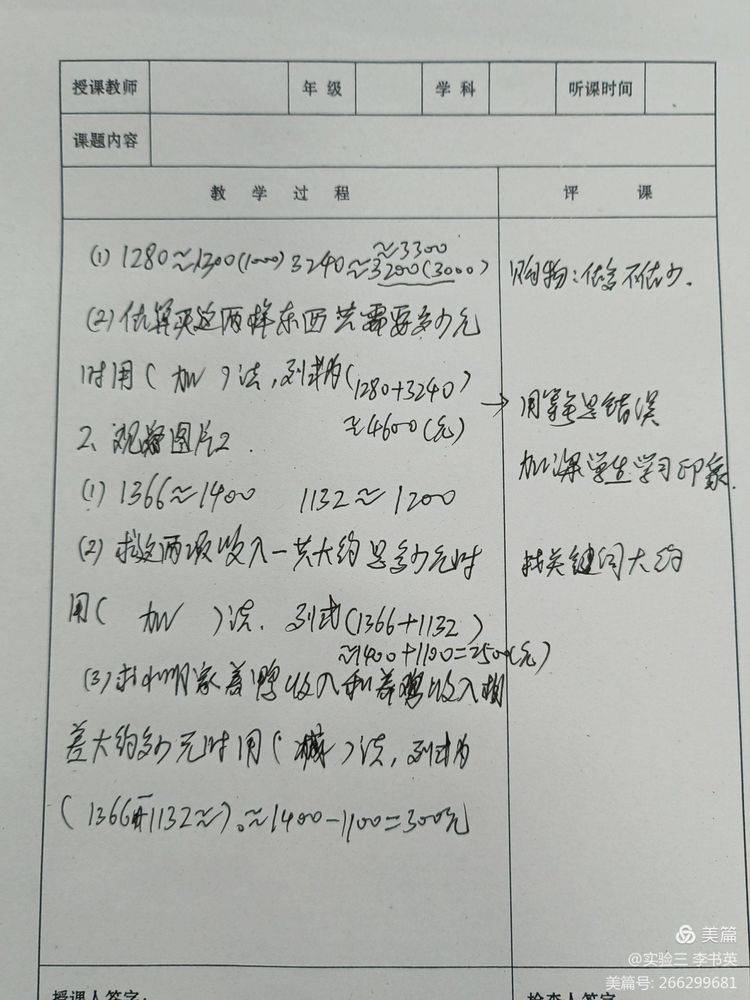 授课教师 年级 学科 听课时间
课题内容
教学过程 评课
≈3300
(1) 1280≈1300(1000) 3240≈3200(3000)
购物:估多不估少.
(2)估算买这两样东西共需要多少元
时用(加)法,列式为(1280+3240)
≈4600(元)
→用等号是错误
加深学生学习印象.
2、观察图片2.
(1) 1366≈1400 1132≈1200
(2)求这两项收入一共大约是多少元时
找关键词大约
用(加)法.列式(1366+1132)
≈1400+1100=2500(元)
(3)求小明家养鸭收入和养鸡收入相
差大约多少元时用(减)法,列式为
(1366-1132≈)。≈1400-1100=300元
美篇
@实验三 李书英
美篇号: 266299681
授课人签字: 检查人签字